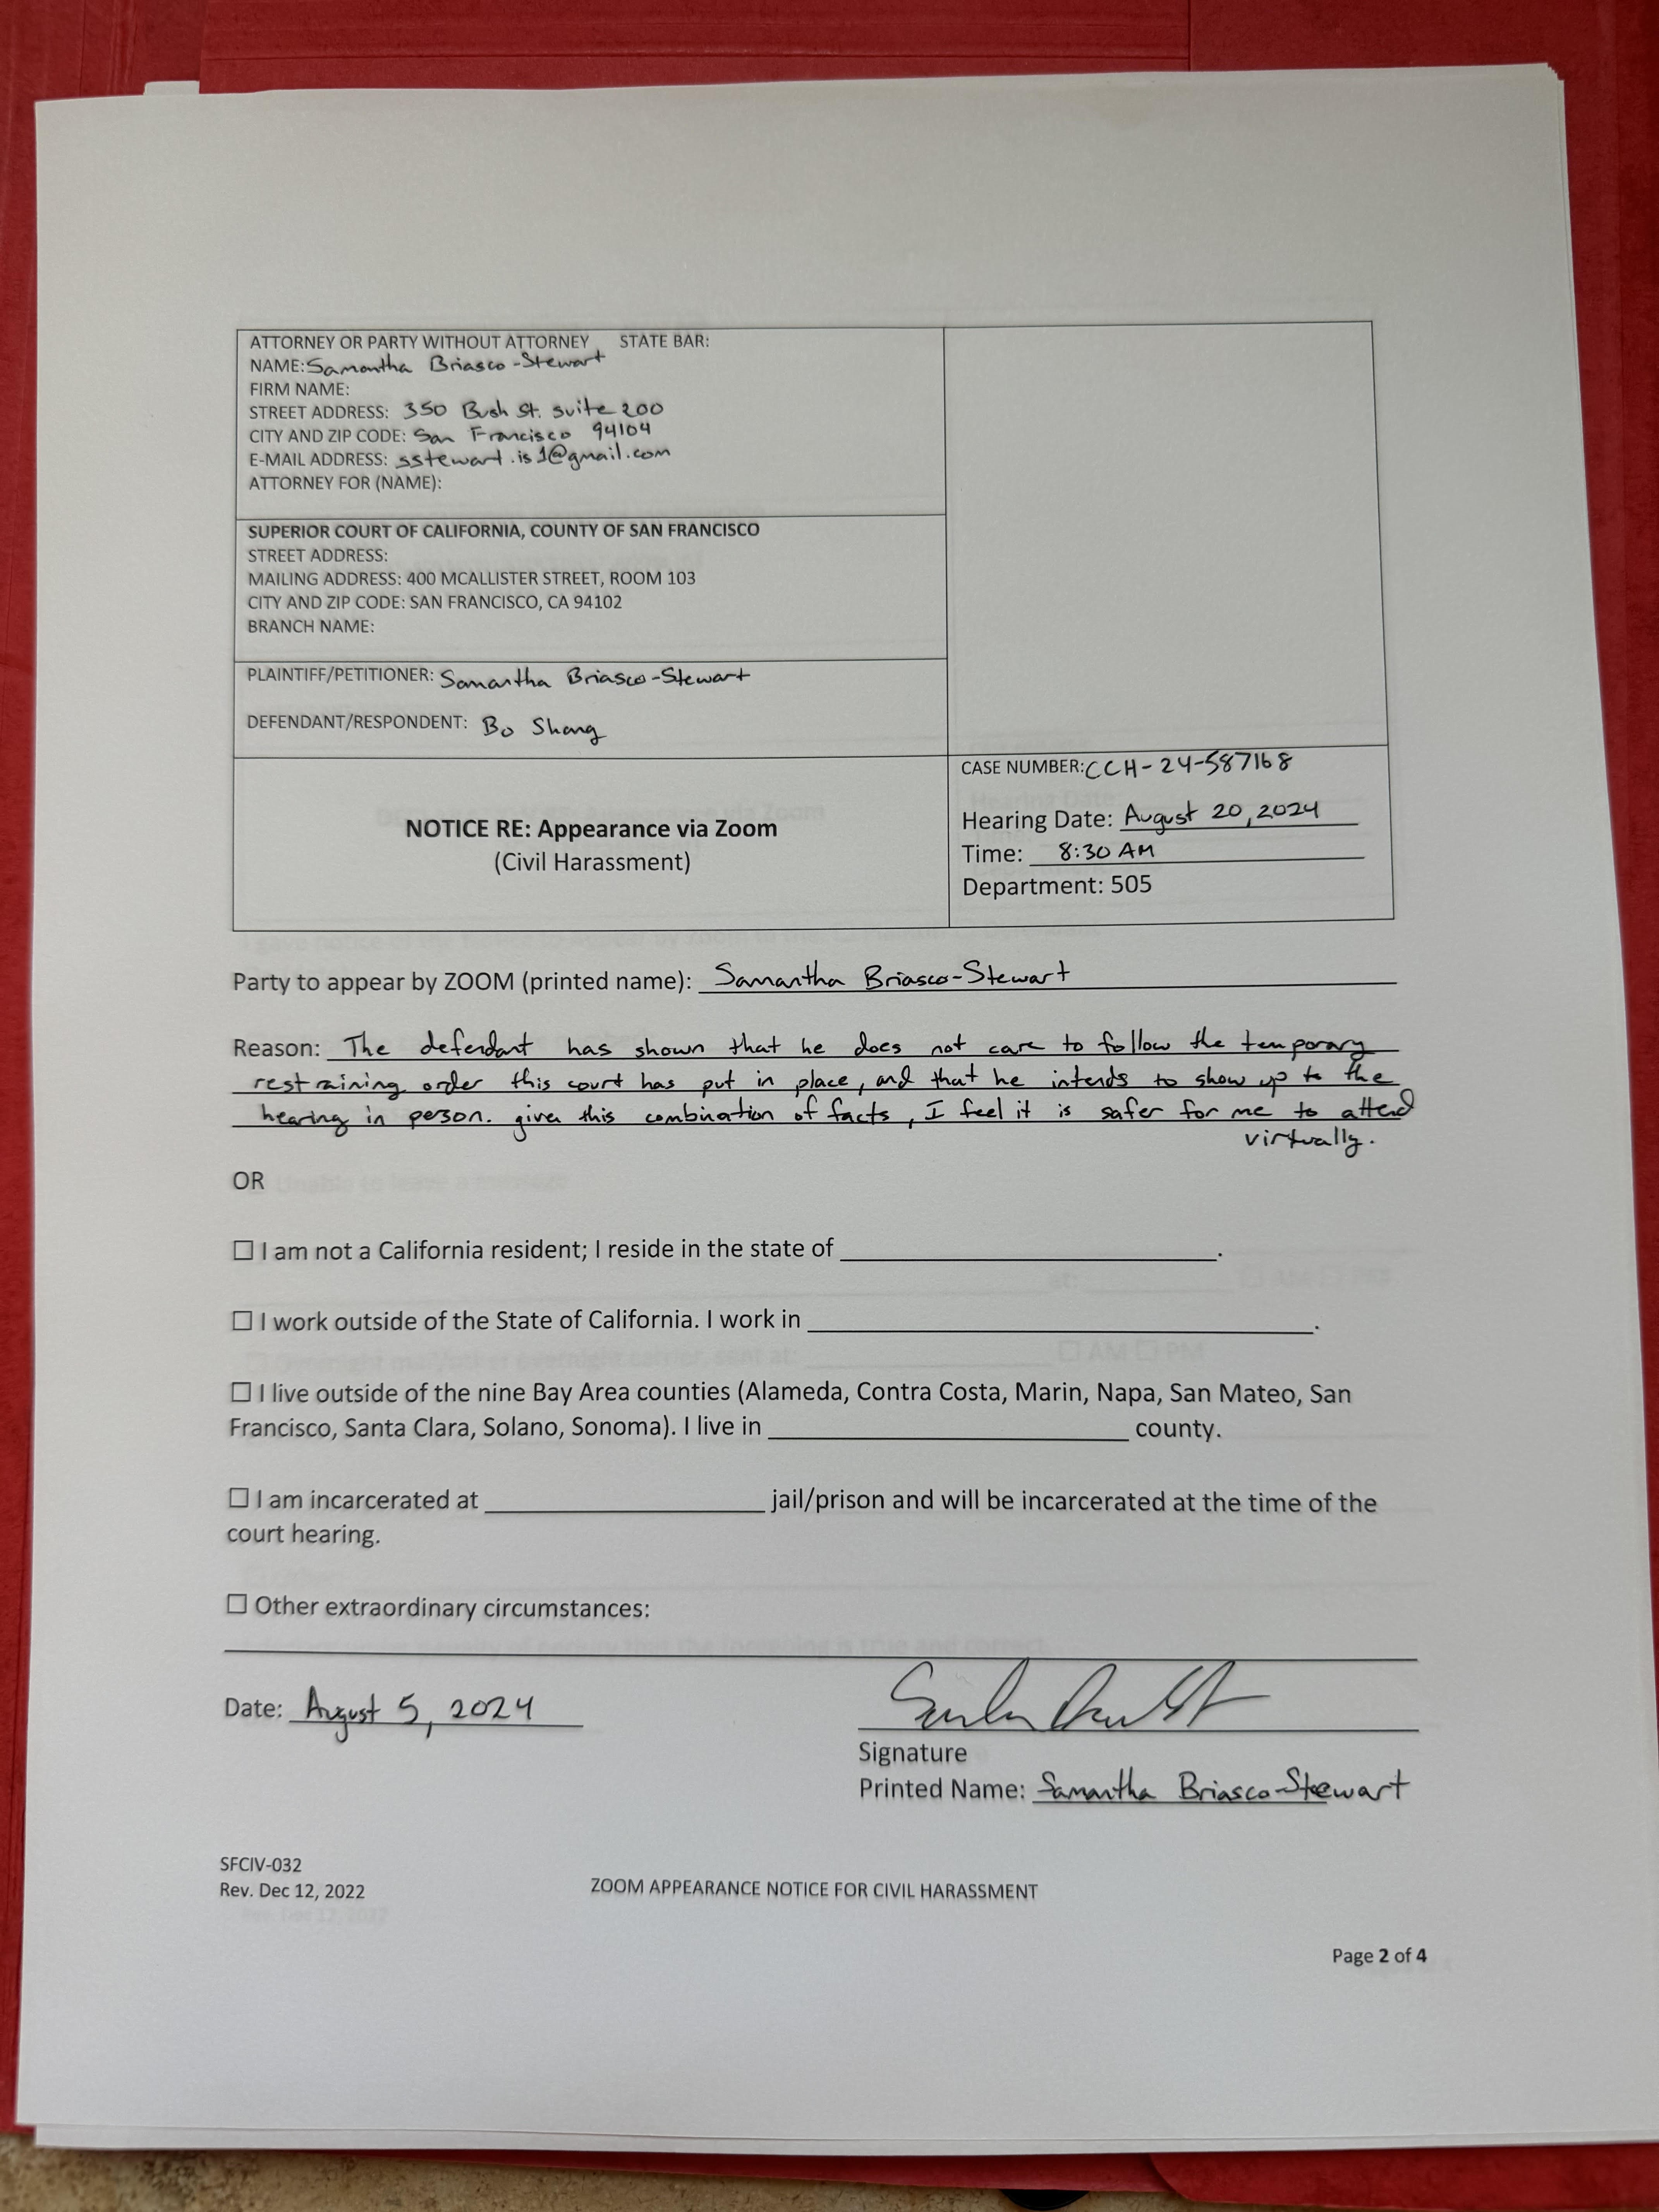 ATTORNEY OR PARTY WITHOUT ATTORNEY STATE BAR:
NAME: Samantha Briasco-Stewart
FIRM NAME:
STREET ADDRESS: 350 Bush St. suite 200
CITY AND ZIP CODE: San Francisco 94104
E-MAIL ADDRESS: sstewart.is1@gmail.com
ATTORNEY FOR (NAME):
SUPERIOR COURT OF CALIFORNIA, COUNTY OF SAN FRANCISCO
STREET ADDRESS:
MAILING ADDRESS: 400 MCALLISTER STREET, ROOM 103
CITY AND ZIP CODE: SAN FRANCISCO, CA 94102
BRANCH NAME:
PLAINTIFF/PETITIONER: Samantha Briasco-Stewart
DEFENDANT/RESPONDENT: Bo Shang
NOTICE RE: Appearance via Zoom
(Civil Harassment)
CASE NUMBER: CCH-24-587168
Hearing Date: August 20, 2024
Time: 8:30 AM
Department: 505
Party to appear by ZOOM (printed name): Samantha Briasco-Stewart
Reason: The defendant has shown that he does not care to follow the temporary
restraining order this court has put in place, and that he intends to show up to the
hearing in person. given this combination of facts, I feel it is safer for me to attend
virtually.
OR
☐ I am not a California resident; I reside in the state of ____.
☐ I work outside of the State of California. I work in ____.
☐ I live outside of the nine Bay Area counties (Alameda, Contra Costa, Marin, Napa, San Mateo, San
Francisco, Santa Clara, Solano, Sonoma). I live in ____ county.
☐ I am incarcerated at ____ jail/prison and will be incarcerated at the time of the
court hearing.
☐ Other extraordinary circumstances:
Date: August 5, 2024
Signature
Printed Name: Samantha Briasco-Stewart
SFCIV-032
Rev. Dec 12, 2022
ZOOM APPEARANCE NOTICE FOR CIVIL HARASSMENT
Page 2 of 4